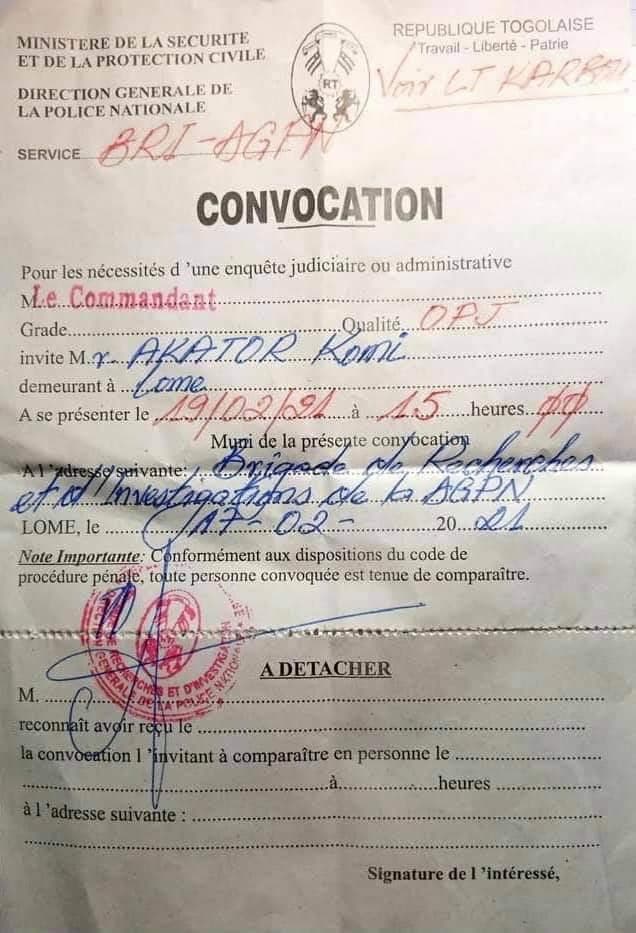 MINISTERE DE LA SECURITE
ET DE LA PROTECTION CIVILE
DIRECTION GENERALE DE
LA POLICE NATIONALE
SERVICE BRI-AGPN
RT
REPUBLIQUE TOGOLAISE
Travail - Liberté - Patrie
Voir LT
CONVOCATION
Pour les nécessités d ’une enquête judiciaire ou administrative
M. Le Commandant
Grade..........Qualité. OPJ
invite M. r AKATOR Komi
demeurant à Lome
A se présenter le 19/02/21 à 15 heures 00
Muni de la présente convocation
A l ’adresse suivante: Brigade de Recherches
et d'Investigations de la AGPN
LOME, le 17-02- 20 21
Note Importante: Conformément aux dispositions du code de
procédure pénale, toute personne convoquée est tenue de comparaître.
RECHERCHES ET D'INVESTIGATION
GENERALE DE LA POLICE NATIONALE
A DETACHER
M. ..........
reconnaît avoir reçu le ..........
la convocation l ’invitant à comparaître en personne le ..........
..........à..........heures ..........
à l ’adresse suivante : ..........
Signature de l ’intéressé,